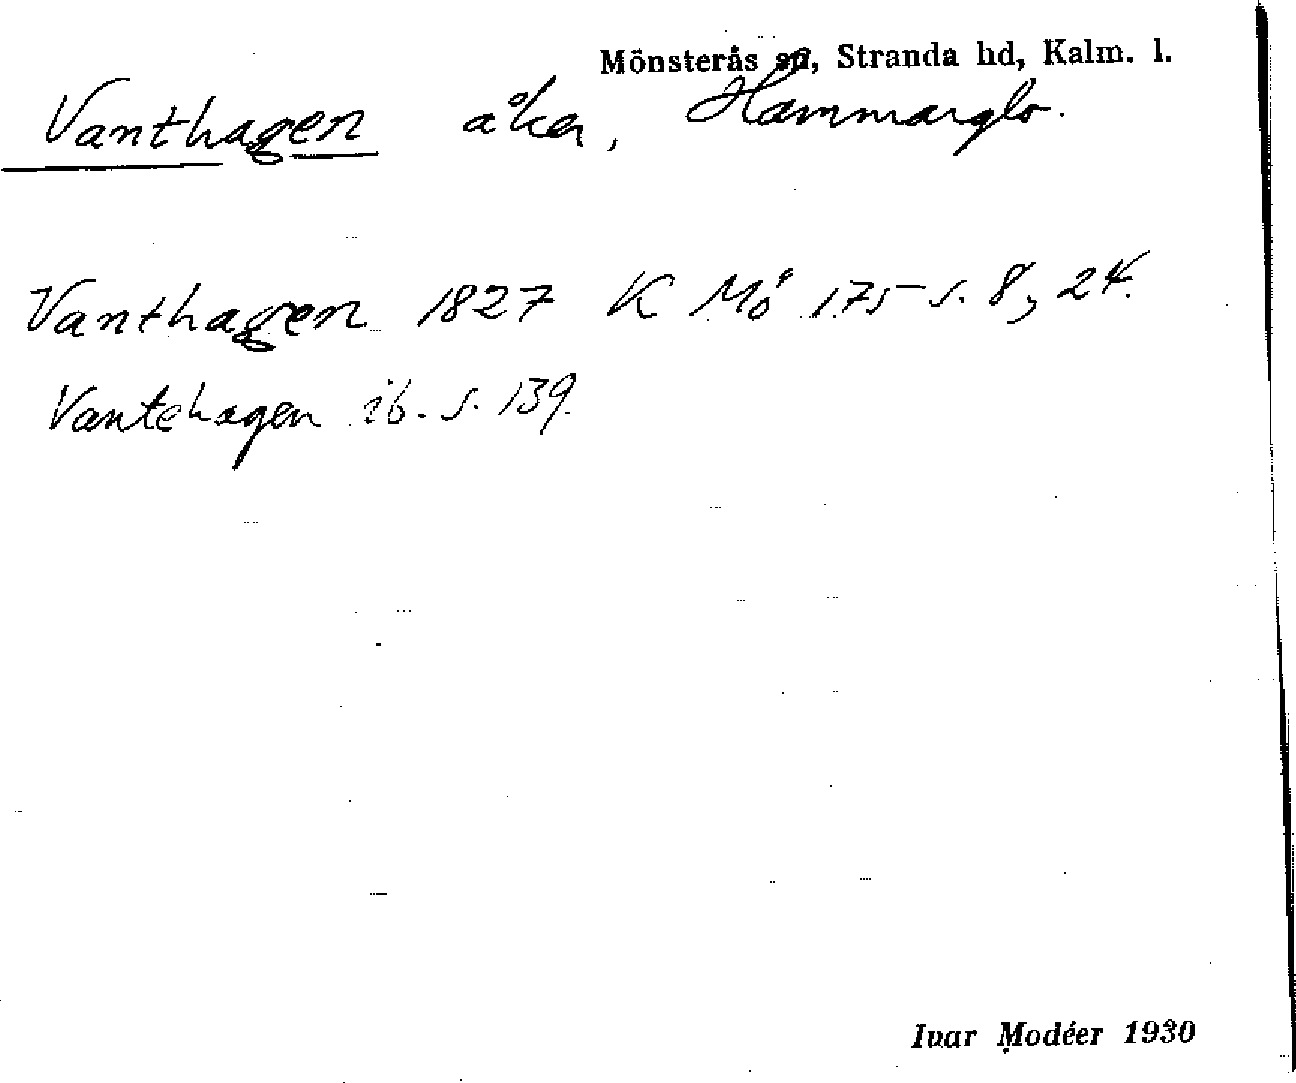 Mönsterås sn, Stranda hd, Kalm. l.
Vanthagen åker, Hammarglo.
Vanthagen 1827 K Mö 175 s. 8, 24.
Vantehagen ib. s. 139.
Ivar Modéer 1930